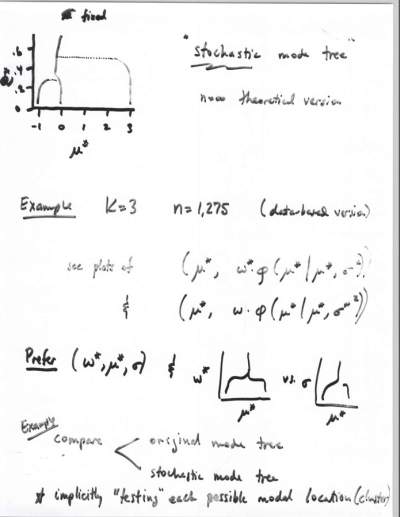 fixed
"stochastic mode tree"
.6
.4
.2
0
-1 0 1 2 3
μ*
now theoretical version
Example K=3 n=1,275 (data-based version)
see plots of (μ*, w*φ(μ*|μ*, σ²))
& (μ*, w·φ(μ*|μ*, σ*²))
Prefer (w*, μ*, σ) & w* vs. σ
μ* μ*
Example
compare original mode tree
stochastic mode tree
* implicitly "testing" each possible modal location (cluster)